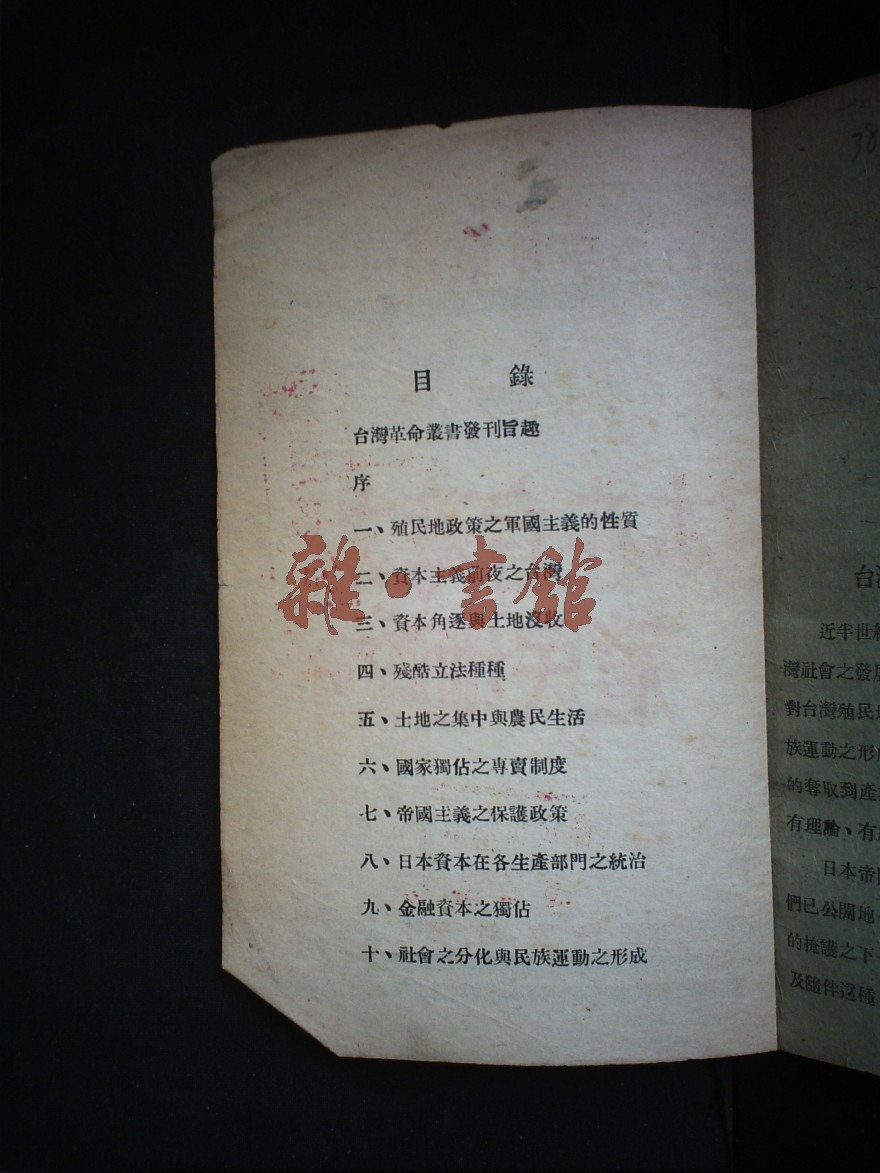 目 錄
台灣革命叢書發刊旨趣
序
一、殖民地政策之軍國主義的性質
二、資本主義前夜之台灣
三、資本角逐與土地沒收
四、殘酷立法種種
五、土地之集中與農民生活
六、國家獨佔之專賣制度
七、帝國主義之保護政策
八、日本資本在各生產部門之統治
九、金融資本之獨佔
十、社會之分化與民族運動之形成
雜·書館
38
台
近半世紀
灣社會之發展
對台灣殖民地
族運動之形成
的奪取到產
有理論、有
日本帝
們已公開地
的掩護之下
及隨伴這種